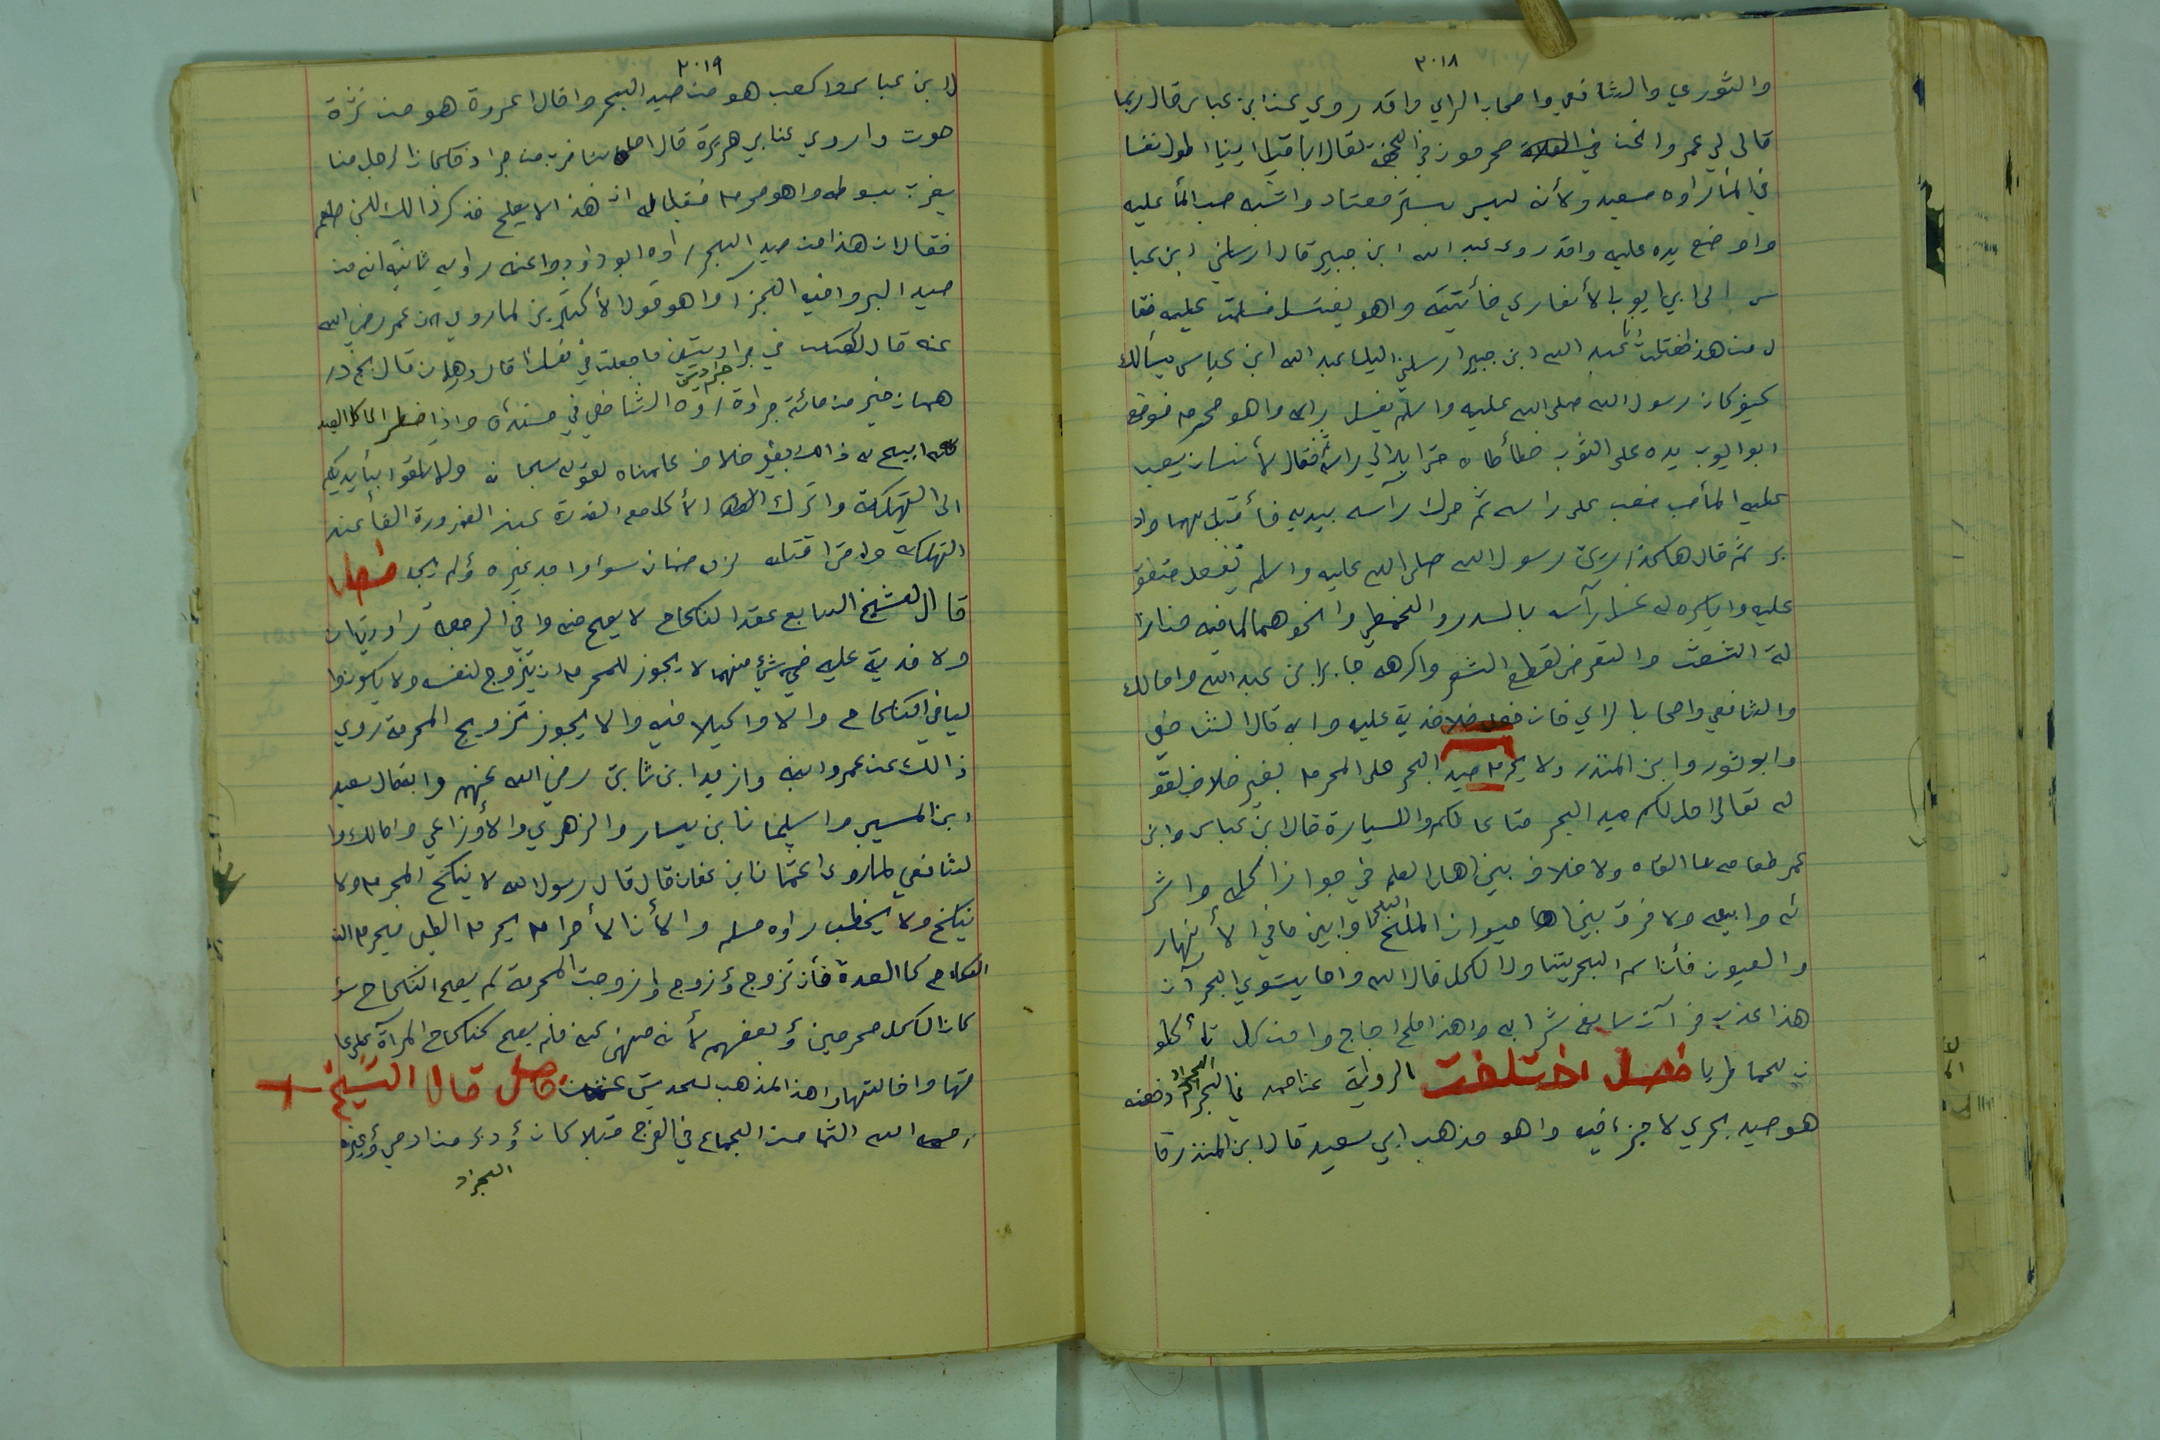 ٢٠١٨
والثوري والشافعي واصحاب الراي واقد روي عن ابن عباس قال ربما
قالى لي عمر وانحن محرمون في الجحفة تعال اباقيك اينيا اطول نفسا
في الما راوه سعيد ولأنه ليس بستر معتاد واشبه صب الما عليه
واوضع يده عليه واقد روى عبد الله ابن جبير قال ارسلني ابن عبا
س الى ابي ايوب الأنصاري فأتيته واهو يغتسل فسلمت عليه فقا
ل من هذا فقلت انا عبد الله ابن جبير ارسلني اليك عبد الله ابن عباس يسألك
كيف كان رسول الله صلى الله عليه واسلم يغسل راسه واهو محرم فوضع
ابوا ايوب يده على الثوب فطأطاه حتى بدا لي راسه ثم قال لأنسان يصب
عليه الما صب فصب على راسه ثم حرك رآسه بيديه فأقبل بهما واد
بر ثم قال هاكذا رايت رسول الله صلى الله عليه واسلم يفعل متفق
عليه وايكره له غسل رآسه بالسدر والخطمي وانحوهما لما فيه من ازا
لة الشعث والتعرض لقطع الشعر واكرهه جابر ابن عبد الله وامالك
والشافعي واصحاب الراي فان فعل فلا فدية عليه وابه قال الشافعي
وابو ثور وابن المنذر ولا يحرم صيد البحر على المحرم بغير خلاف لقو
له تعالى احل لكم صيد البحر متاعا لكم واللسيارة قال ابن عباس وابن
عمر طعامه ما القاه ولا خلاف بين اهل العلم في جواز اكله واشر
ئه وابيعه ولا فرق بين حيوان البحر الملح وابين ما في الأنهار
والعيون فأن اسم البحر يتناول الكل قال الله وما يستوي البحرآن
هذا عذب فرآت سايغ شرابه واهذا ملح اجاج وامن كل تأكلو
ن لحما طريا فصل اختلفت الرواية عن احمد في الجراد فعنه
هو صيد بحري لا جزء فيه واهو مذهب ابي سعيد قال ابن المنذر قا
٢٠١٩
ل ابن عباس واكعب هو من صيد البحر واقال عروة هو من نثرة
حوت واروي عن ابي هريرة قال اصابنا ضرب من جراد فكان الرجل منا
يضرب بسوطه واهو محرم فقيل له ان هذا لا يصلح فذكر ذالك للنبي صلعم
فقال ان هذا من صيد البحر راوه ابو داود واعنه رواية ثانية انه من
صيد البر وافيه الجزآ واهو قول الأكثرين لما روي ان عمر رضي الله
عنه قال لكعب في جرادتين ما جعلت في نفسك قال درهمان قال بخ در
همان خير من مائة جرادة راوه الشافعي في مسنده واذا اضطر الى اكل الصيد
ابيح له ذالك بغير خلاف علمناه لقوله سبحانه ولا تلقوا بأيديكم
الى التهلكة واترك الأكل مع القدرة عند الضرورة القا عند
التهلكة وامتى قتله لزمه ضمانه سوا وجد غيره وألم يجد فصل
قال الشيخ السابع عقد النكاح لا يصح منه وافي الرجعة راويتان
ولا فدية عليه في شيء منهما لا يجوز للمحرم ان يتزوج لنفسه ولا يكون وا
ليا في النكاح والا واكيلا فيه والا يجوز تزويج المحرمة روي
ذالك عن عمر وابنه وازيد ابن ثابت رضي الله عنهم وابه قال سعيد
ابن المسيب واسليمان ابن يسار والزهري والأوزاعي وامالك وا
لشافعي لما روى عثمان ابن عفان قال قال رسول الله لا ينكح المحرم ولا
ينكح ولا يخطب راوه مسلم والأن الأحرام يحرم الطيب فيحرم الن
النكاح كا العدة فأن تزوج أو زوج وا زوجت المحرمة لم يصح النكاح سو
كان الكل محرمين أو بعضهم لأنه منهي عنه فلم يصح كنكاح المرأة على
متها واخالتها واهذا المذهب لحديث عثمان فصل قال الشيخ
رحمه الله الثامن الجماع في الفرج قبلا كان أو دبرا من ادمي أو غيره
الجراد